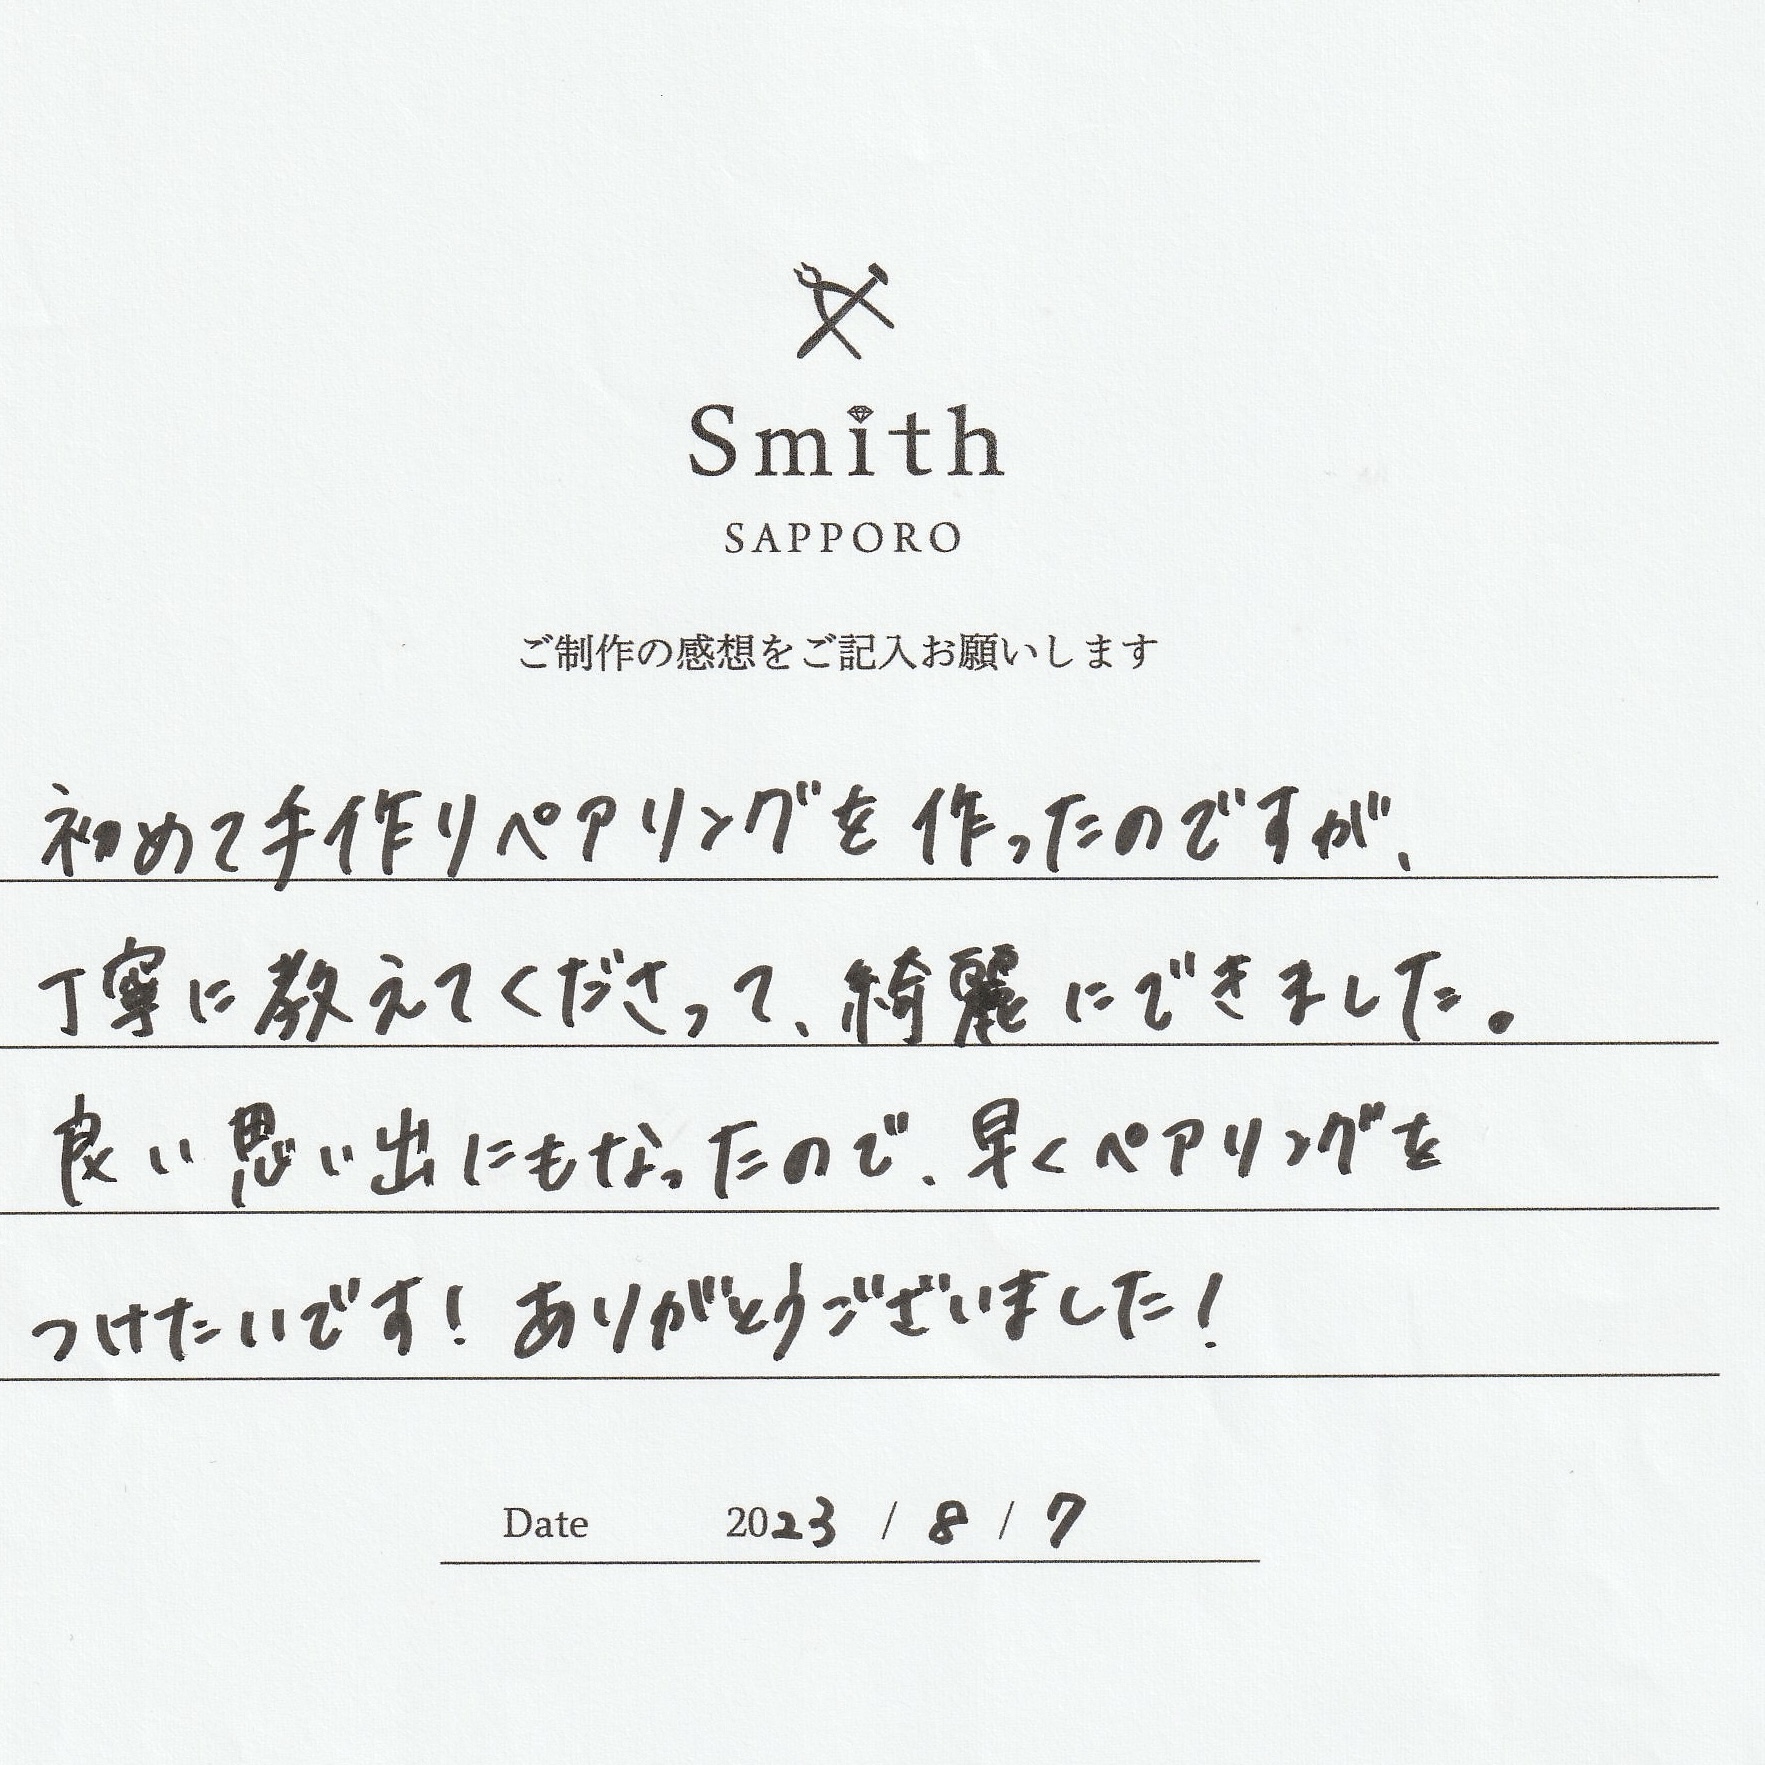 Smith
SAPPORO
ご制作の感想をご記入お願いします
初めて手作りペアリングを作ったのですが、
丁寧に教えてくださって、綺麗にできました。
良い思い出にもなったので、早くペアリングを
つけたいです！ありがとうございました！
Date 2023 / 8 / 7